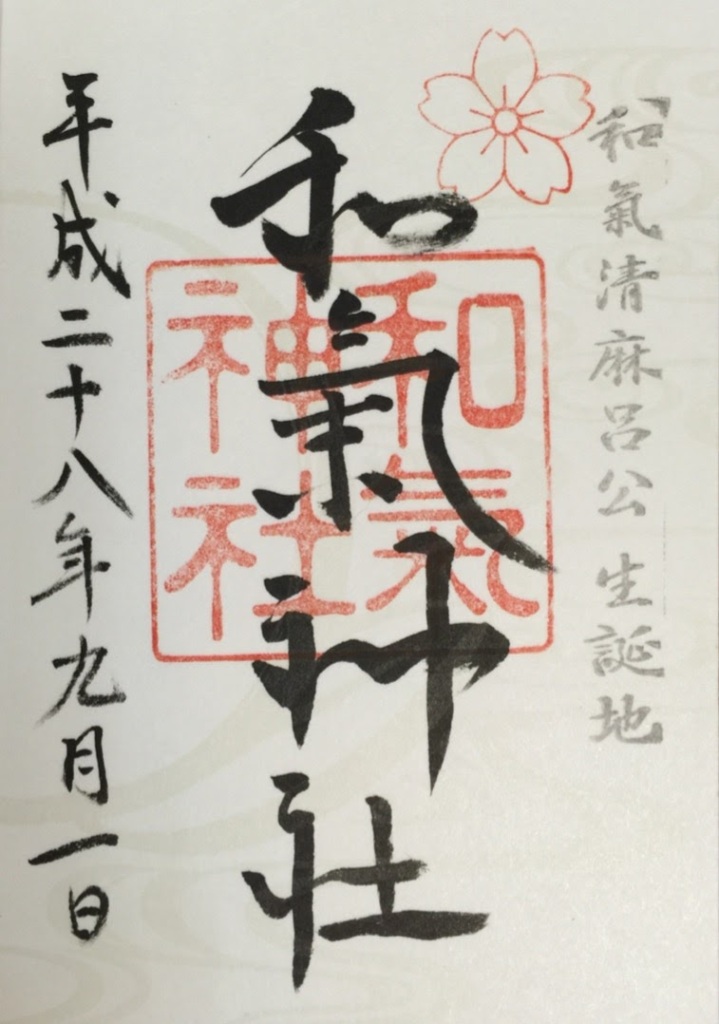 和氣清麻呂公生誕地
和氣神社
和氣
神社
平成二十八年九月一日